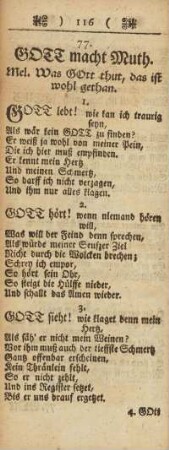 ) 116 (
77.
GOTT macht Muth.
Mel. Was GOtt thut, das ist
wohl gethan.
1.
GOTT lebt! wie kan ich traurig
seyn,
Als wär kein GOTT zu finden?
Er weiß ja wohl von meiner Pein,
Die ich hier muß empfinden.
Er kennt mein Hertz
Und meinen Schmertz,
So darff ich nicht verzagen,
Und ihm nur alles klagen.
2.
GOTT hört! wenn niemand hören
will,
Was will der Feind denn sprechen,
Als würde meiner Seufzer Ziel
Nicht durch die Wolcken brechen;
Schrey ich empor,
So hört sein Ohr,
So steigt die Hülffe nieder,
Und schallt das Amen wieder.
3.
GOTT sieht! wie klaget denn mein
Hertz,
Als säh' er nicht mein Weinen?
Vor ihm muß auch der tieffste Schmertz
Gantz offenbar erscheinen,
Kein Thränlein fehlt,
So er nicht zehlt,
Und ins Register setzet,
Biß er uns drauf ergetzet.
4. GOtt